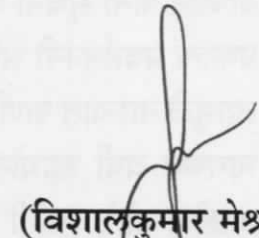 (विशालकुमार मेश्र